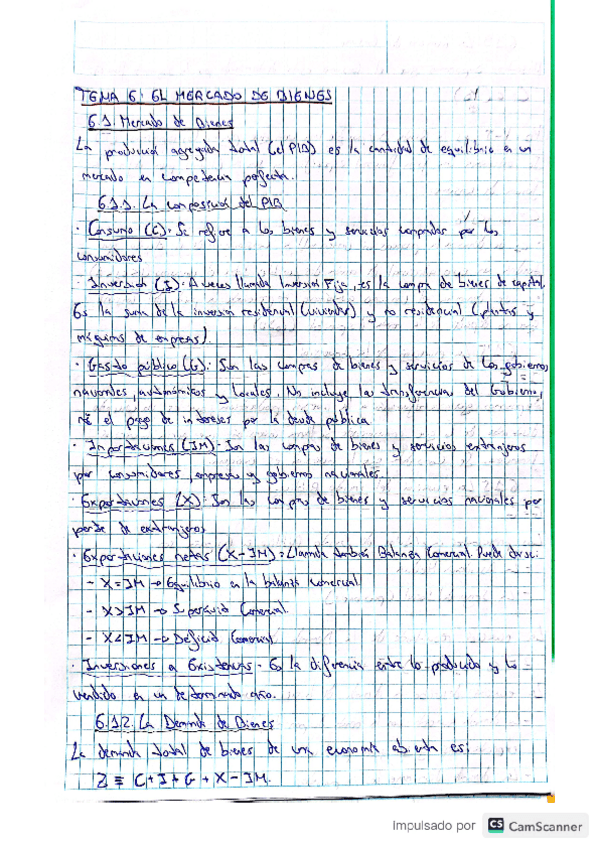 TEMA 6: EL MERCADO DE BIENES
6.1. Mercado de Bienes
La producción agregada total (el PIB) es la cantidad de equilibrio en un
mercado en competencia perfecta.
6.1.1. La composición del PIB
· Consumo (C). Se refiere a los bienes y servicios comprados por los
consumidores
· Inversión (I). A veces llamada Inversión Fija, es la compra de bienes de capital.
Es la suma de la inversión residencial (viviendas) y no residencial (plantas y
máquinas de empresas).
· Gasto público (G). Son las compras de bienes y servicios de los gobiernos
nacionales, autonómicos y locales. No incluye las transferencias del Gobierno,
ni el pago de intereses por la deuda pública
· Importaciones (IM) - Son las compras de bienes y servicios extranjeros
por consumidores, empresas y gobiernos nacionales.
· Exportaciones (X). Son las compras de bienes y servicios nacionales por
parte de extranjeros
· Exportaciones netas (X-IM): Llamada también Balanza Comercial. Puede darse:
- X=IM → Equilibrio en la balanza comercial
- X>IM → Superávit Comercial.
- X<IM → Déficit Comercial
· Inversiones a Existencias - Es la diferencia entre lo producido y lo
vendido en un determinado año.
6.1.2. La Demanda de Bienes
La demanda total de bienes de una economía abierta es:
Z ≡ C+I+G+X-IM.
Impulsado por CS CamScanner